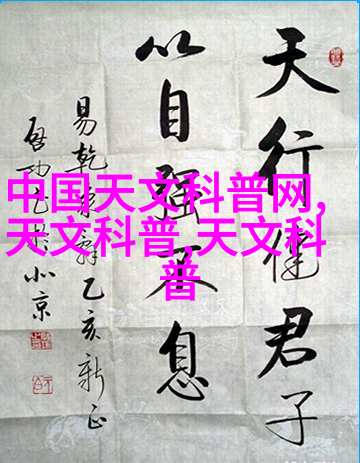 天行健君子
以自强不息
易乾象辞乙亥新正
启功书于北京
中国天文科普网,
天文科普,天文科
普